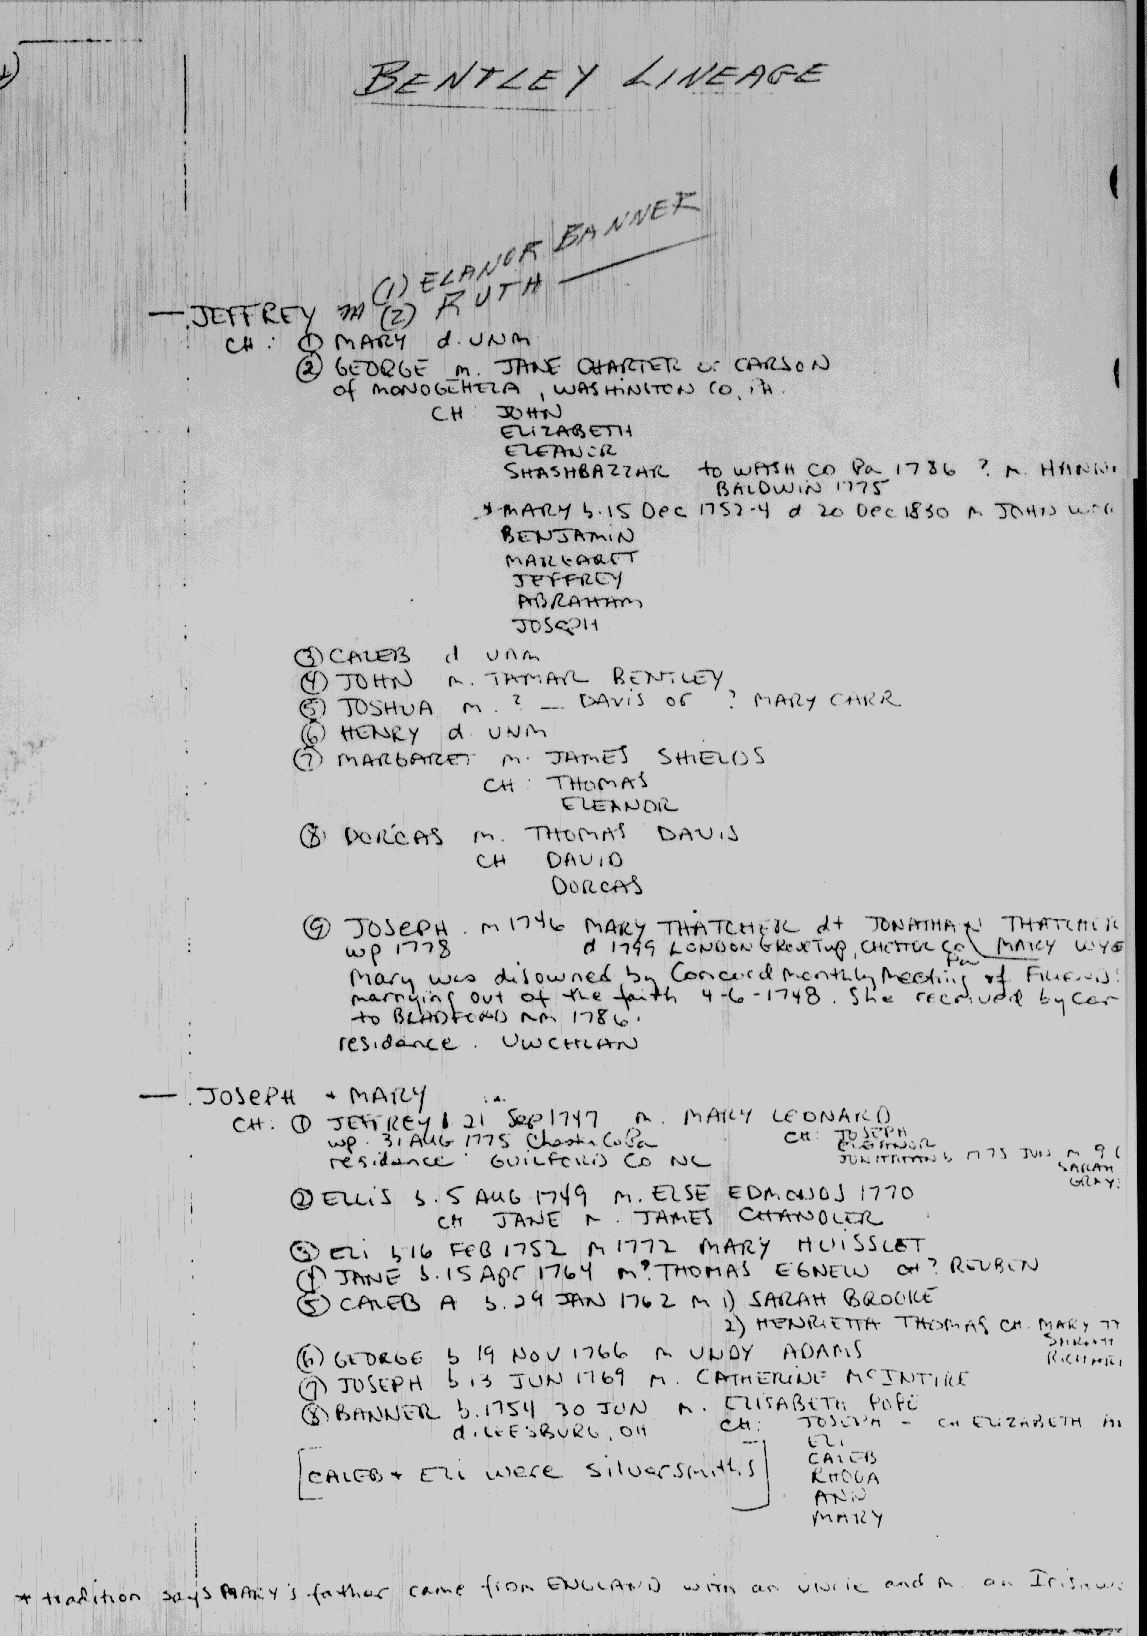 BENTLEY LINEAGE
— JEFFREY m (1) ELANOR BANNER
(2) RUTH ——
CH: ① MARY d. UNM
② GEORGE m. JANE CHARTER or CARSON
of MONOGEHELA, WASHINGTON CO, PA.
CH JOHN
ELIZABETH
ELEANOR
SHASHBAZZAR to WASH CO Pa 1786 ? m. HANN
BALDWIN 1775
* MARY b. 15 Dec 1752-4 d 20 Dec 1830 m JOHN
BENJAMIN
MARGARET
JEFFREY
ABRAHAM
JOSEPH
③ CALEB d UNM
④ JOHN m. TAMAR BENTLEY
⑤ JOSHUA m. ? — DAVIS or ? MARY CARR
⑥ HENRY d. UNM
⑦ MARGARET m. JAMES SHIELDS
CH: THOMAS
ELEANOR
⑧ DORCAS m. THOMAS DAVIS
CH DAVID
DORCAS
⑨ JOSEPH. m 1746 MARY THATCHER dt JONATHAN THATCHER
wp 1778 d 1799 LONDON GROVE Twp, CHESTER Co Pa MARY WYE
Mary was disowned by Concord Monthly Meeting of FRIENDS
marrying out of the faith 4-6-1748. She received by cer
to BRADFORD MM 1786.
residence. UWCHLAN
— JOSEPH + MARY
CH: ① JEFFREY b 21 Sep 1747 m. MARY LEONARD
wp. 31 AUG 1775 Chester Co Pa CH: JOSEPH
ELEANOR
residence: GUILFORD CO NC JONATHAN b 1775 JUN m 9
SARAH
GRAY
② ELLIS b. 5 AUG 1749 m. ELSE EDMONDS 1770
CH JANE m. JAMES CHANDLER
③ ELI b 16 FEB 1752 m 1772 MARY HUISSLET
④ JANE b. 15 Apr 1764 m? THOMAS EGNEW CH? REUBEN
⑤ CALEB A b. 29 JAN 1762 m 1) SARAH BROOKE
2) HENRIETTA THOMAS CH. MARY
SARAH
RICHARD
⑥ GEORGE b 19 NOV 1766 m UNDY ADAMS
⑦ JOSEPH b 13 JUN 1769 m. CATHERINE McINTIRE
⑧ BANNER b. 1754 30 JUN m. ELISABETH POPE
d. LEESBURG, OH CH: JOSEPH - CH ELIZABETH
ELI
[CALEB + ELI were silversmiths] CALEB
RHODA
ANN
MARY
* tradition says MARY's father came from ENGLAND with an uncle and m. an